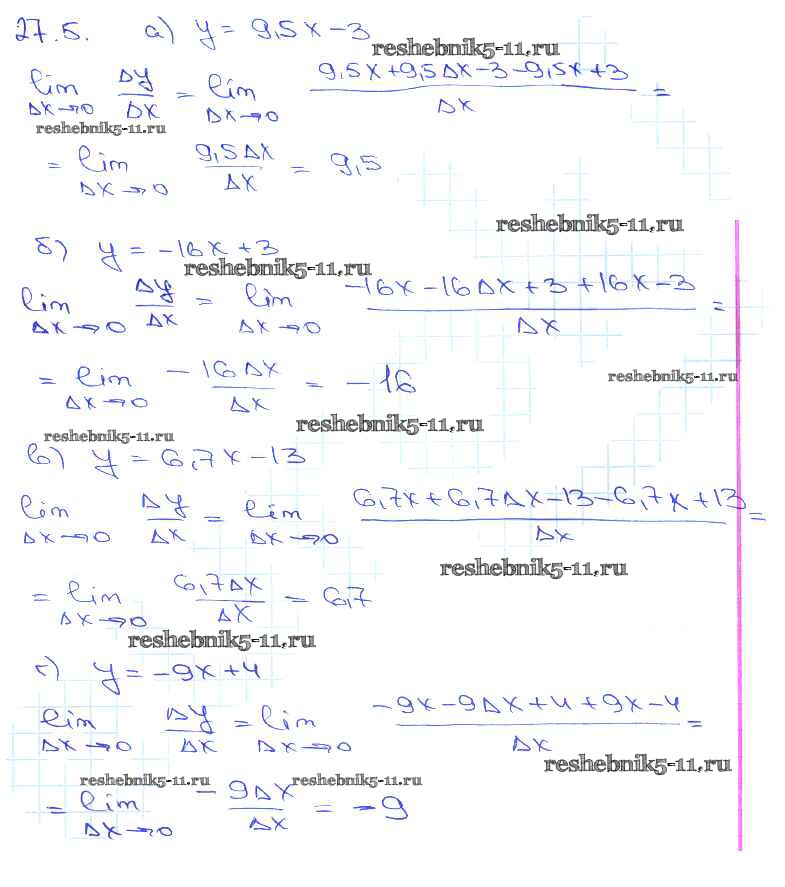 27.5. а) y = 9,5x - 3
reshebnik5-11.ru
lim Δy/Δx = lim (9,5x + 9,5Δx - 3 - 9,5x + 3)/Δx =
Δx→0 Δx→0
reshebnik5-11.ru
= lim 9,5Δx/Δx = 9,5
Δx→0
reshebnik5-11.ru
б) y = -16x + 3
reshebnik5-11.ru
lim Δy/Δx = lim (-16x - 16Δx + 3 + 16x - 3)/Δx =
Δx→0 Δx→0
= lim -16Δx/Δx = -16
reshebnik5-11.ru
Δx→0
reshebnik5-11.ru
reshebnik5-11.ru
в) y = 6,7x - 13
lim Δy/Δx = lim (6,7x + 6,7Δx - 13 - 6,7x + 13)/Δx =
Δx→0 Δx→0
reshebnik5-11.ru
= lim 6,7Δx/Δx = 6,7
Δx→0
reshebnik5-11.ru
г) y = -9x + 4
lim Δy/Δx = lim (-9x - 9Δx + 4 + 9x - 4)/Δx =
Δx→0 Δx→0
reshebnik5-11.ru
reshebnik5-11.ru reshebnik5-11.ru
= lim -9Δx/Δx = -9
Δx→0